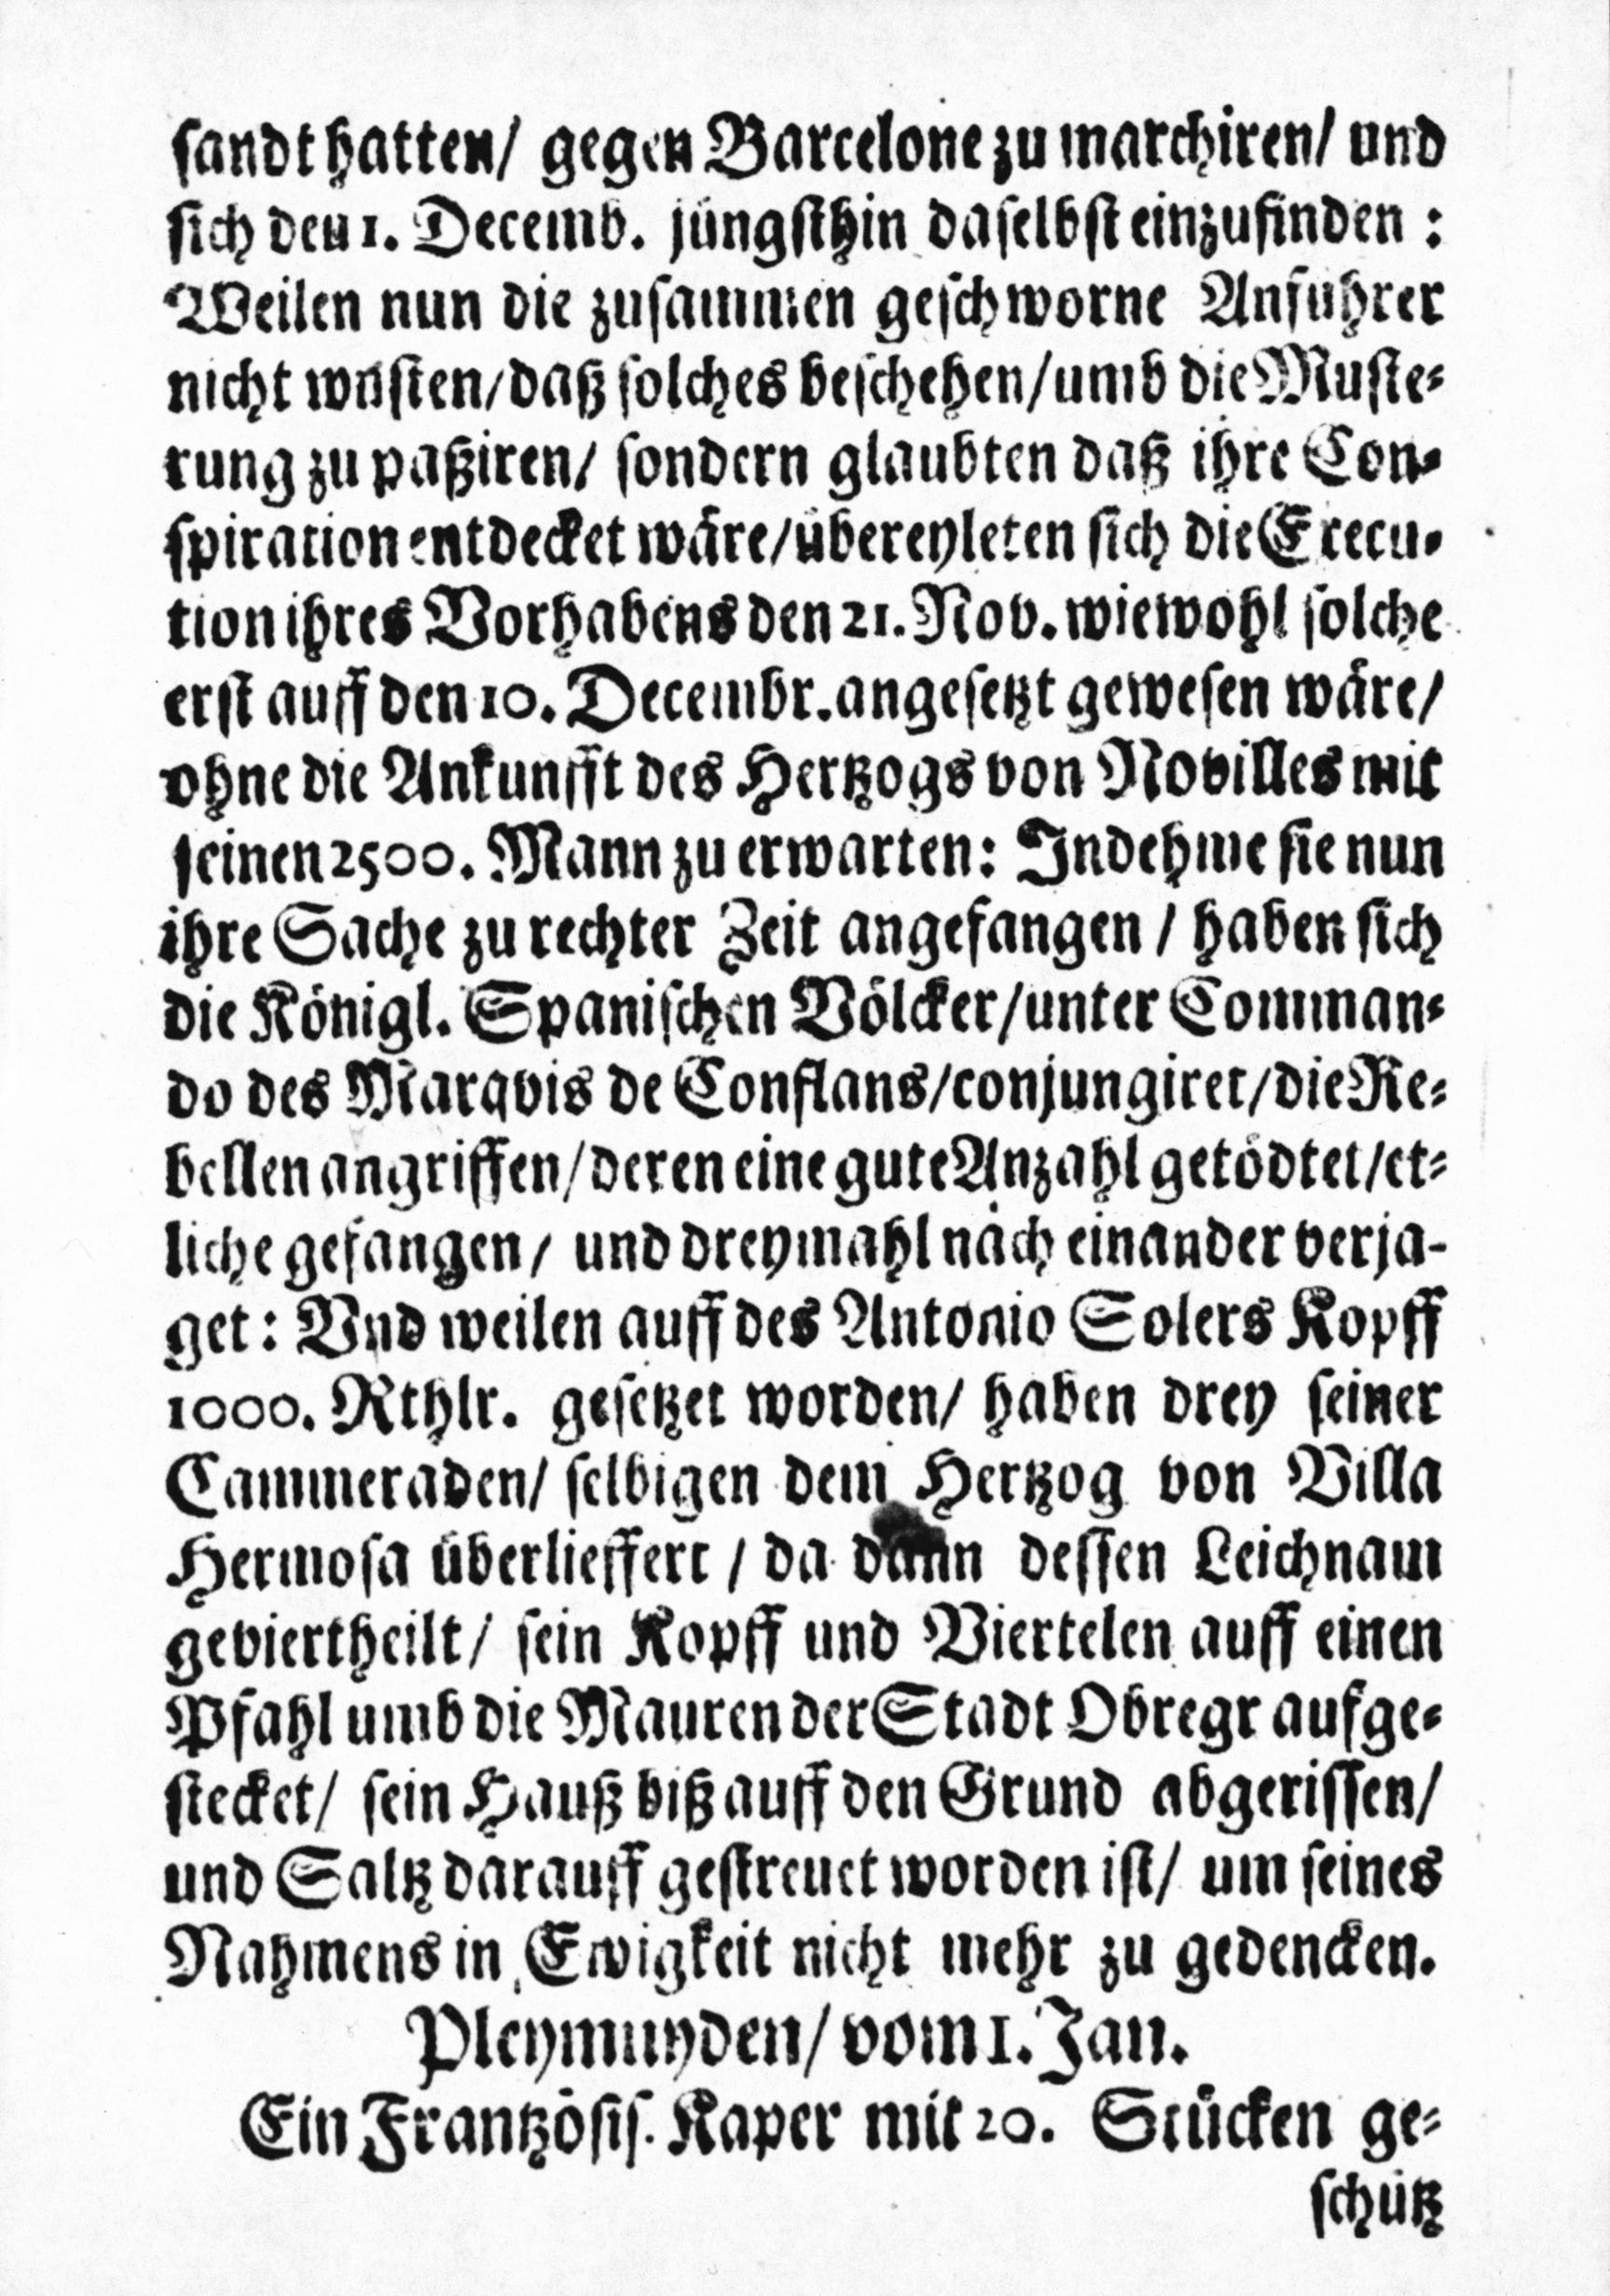 sandt hatten/ gegen Barcelone zu marchiren/ und
sich den 1. Decemb. jüngsthin daselbst einzufinden :
Weilen nun die zusammen geschworne Anführer
nicht wüsten/daß solches beschehen/umb die Muste-
rung zu paßiren/ sondern glaubten daß ihre Con-
spiration entdecket wäre/übereyleten sich die Execu-
tion ihres Vorhabens den 21. Nov. wiewohl solche
erst auff den 10. Decembr. angesetzt gewesen wäre/
ohne die Ankunfft des Hertzogs von Novilles mit
seinen 2500. Mann zu erwarten: Indehme sie nun
ihre Sache zu rechter Zeit angefangen / haben sich
die Königl. Spanischen Völcker/unter Comman-
do des Marqvis de Conflans/conjungiret/die Re-
bellen angriffen/deren eine gute Anzahl getödtet/et-
liche gefangen/ und dreymahl nach einander verja-
get: Vnd weilen auff des Antonio Solers Kopff
1000. Rthlr. gesetzet worden/ haben drey seiner
Cammeraden/ selbigen dem Hertzog von Villa
Hermosa überlieffert / da dann dessen Leichnam
geviertheilt/ sein Kopff und Viertelen auff einen
Pfahl umb die Mauren der Stadt Obregr aufge-
stecket/ sein Hauß biß auff den Grund abgerissen/
und Saltz darauff gestreuet worden ist/ um seines
Nahmens in Ewigkeit nicht mehr zu gedencken.
Pleymuyden/ vom 1. Jan.
Ein Frantzösis. Kaper mit 20. Stücken ge-
schütz